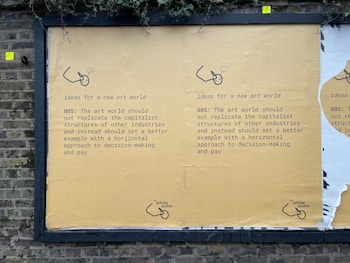 ideas for a new art world
005: The art world should
not replicate the capitalist
structures of other industries
and instead should set a better
example with a horizontal
approach to decision-making
and pay
the
white
pube
ideas for a new art world
005: The art world should
not replicate the capitalist
structures of other industries
and instead should set a better
example with a horizontal
approach to decision-making
and pay
the
white
pube